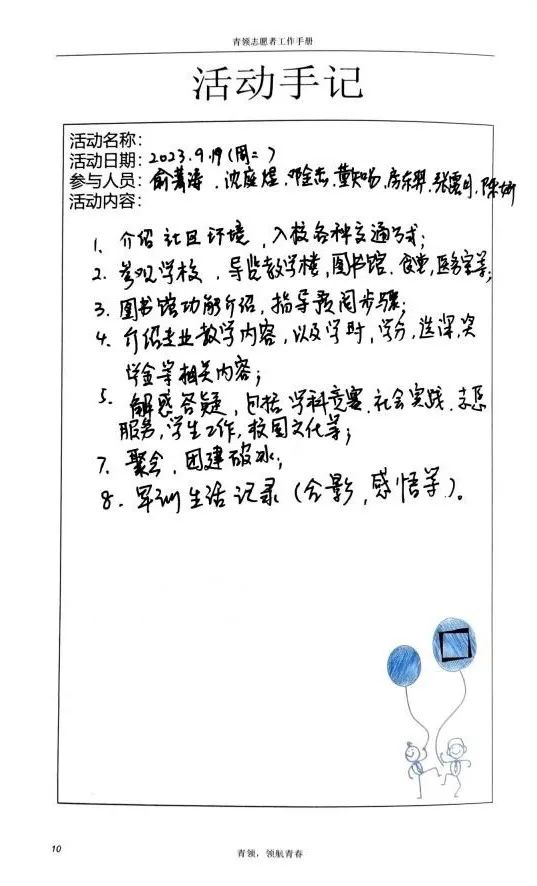 青领志愿者工作手册
活动手记
活动名称:
活动日期: 2023.9.19(周二)
参与人员: 俞菁涛、沈庭煜、邓全杰、董知昀、房乐羿、张雲月、陈妍
活动内容:
1、介绍社区环境,入校各种交通方式;
2、参观学校,导览教学楼,图书馆、食堂,医务室等;
3、图书馆功能介绍,指导预约步骤;
4、介绍专业教学内容,以及学时,学分,选课,奖
学金等相关内容;
5、解惑答疑,包括学科竞赛、社会实践、志愿
服务,学生工作,校园文化等;
7、聚会,团建破冰;
8、军训生活记录(合影,感悟等)。
10
青领,领航青春